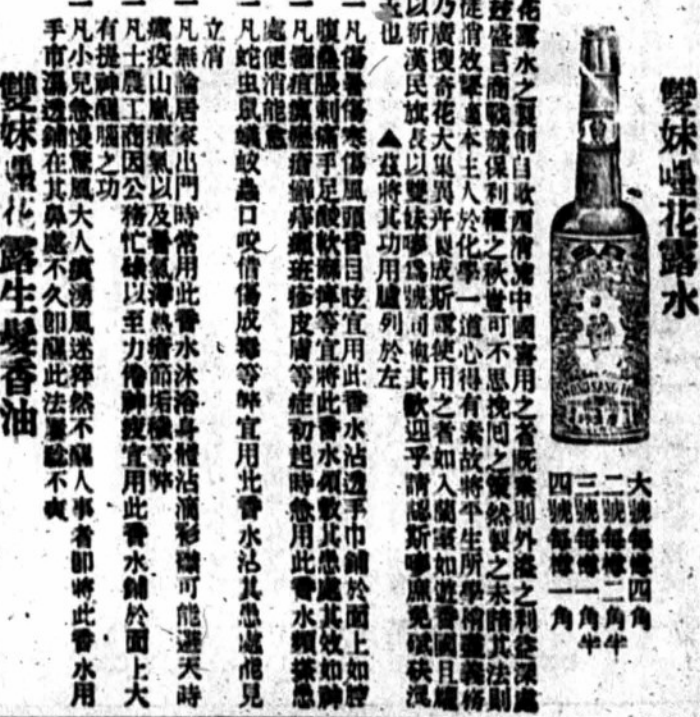 雙妹嘜花露水
大號每樽四角
二號每樽二角半
三號每樽一角半
四號每樽一角
花露水之製創自歐西消流中國喜用之者既衆則外溢之利益深處
盛言商戰謀保利權之秋豈可不思挽回之策然製之未精其法則
徒消效本主人於化學一道心得有素故將平生所學稍盡義務
乃廣搜奇花大集異卉製成斯露使用之者如入蘭室如遊香國且
以新漢民旗長以雙妹嘜爲號同胞其歡迎乎請認斯嘜庶免碔砆混
也
▲茲將其功用臚列於左
一凡傷暑傷寒傷風頭昏目眩宜用此香水沾透手巾鋪於面上如腔
腹脹刺痛手足酸軟麻痺等宜將此香水頻數其患處其效如神
一凡癰疽瘡癬疹皮膚等症初起時急用此香水頻搽患
處便消能愈
一凡蛇虫鼠蟻蚊蟲口咬傷成毒等弊宜用此香水沾其患處能見
立消
一凡無論居家出門時常用此香水沐浴身體沾滴衫襪可能避天時
癘疫山嵐瘴氣以及暑氣瀄熱瘡節垢穢等弊
一凡士農工商因公務忙碌以至力倦神疲宜用此香水鋪於面上大
有提神醒腦之功
一凡小兒急慢驚風大人痰湧風迷猝然不醒人事者即將此香水用
手巾濕透鋪在其鼻處不久即醒此法屢驗不爽
雙妹嘜花露生髮香油